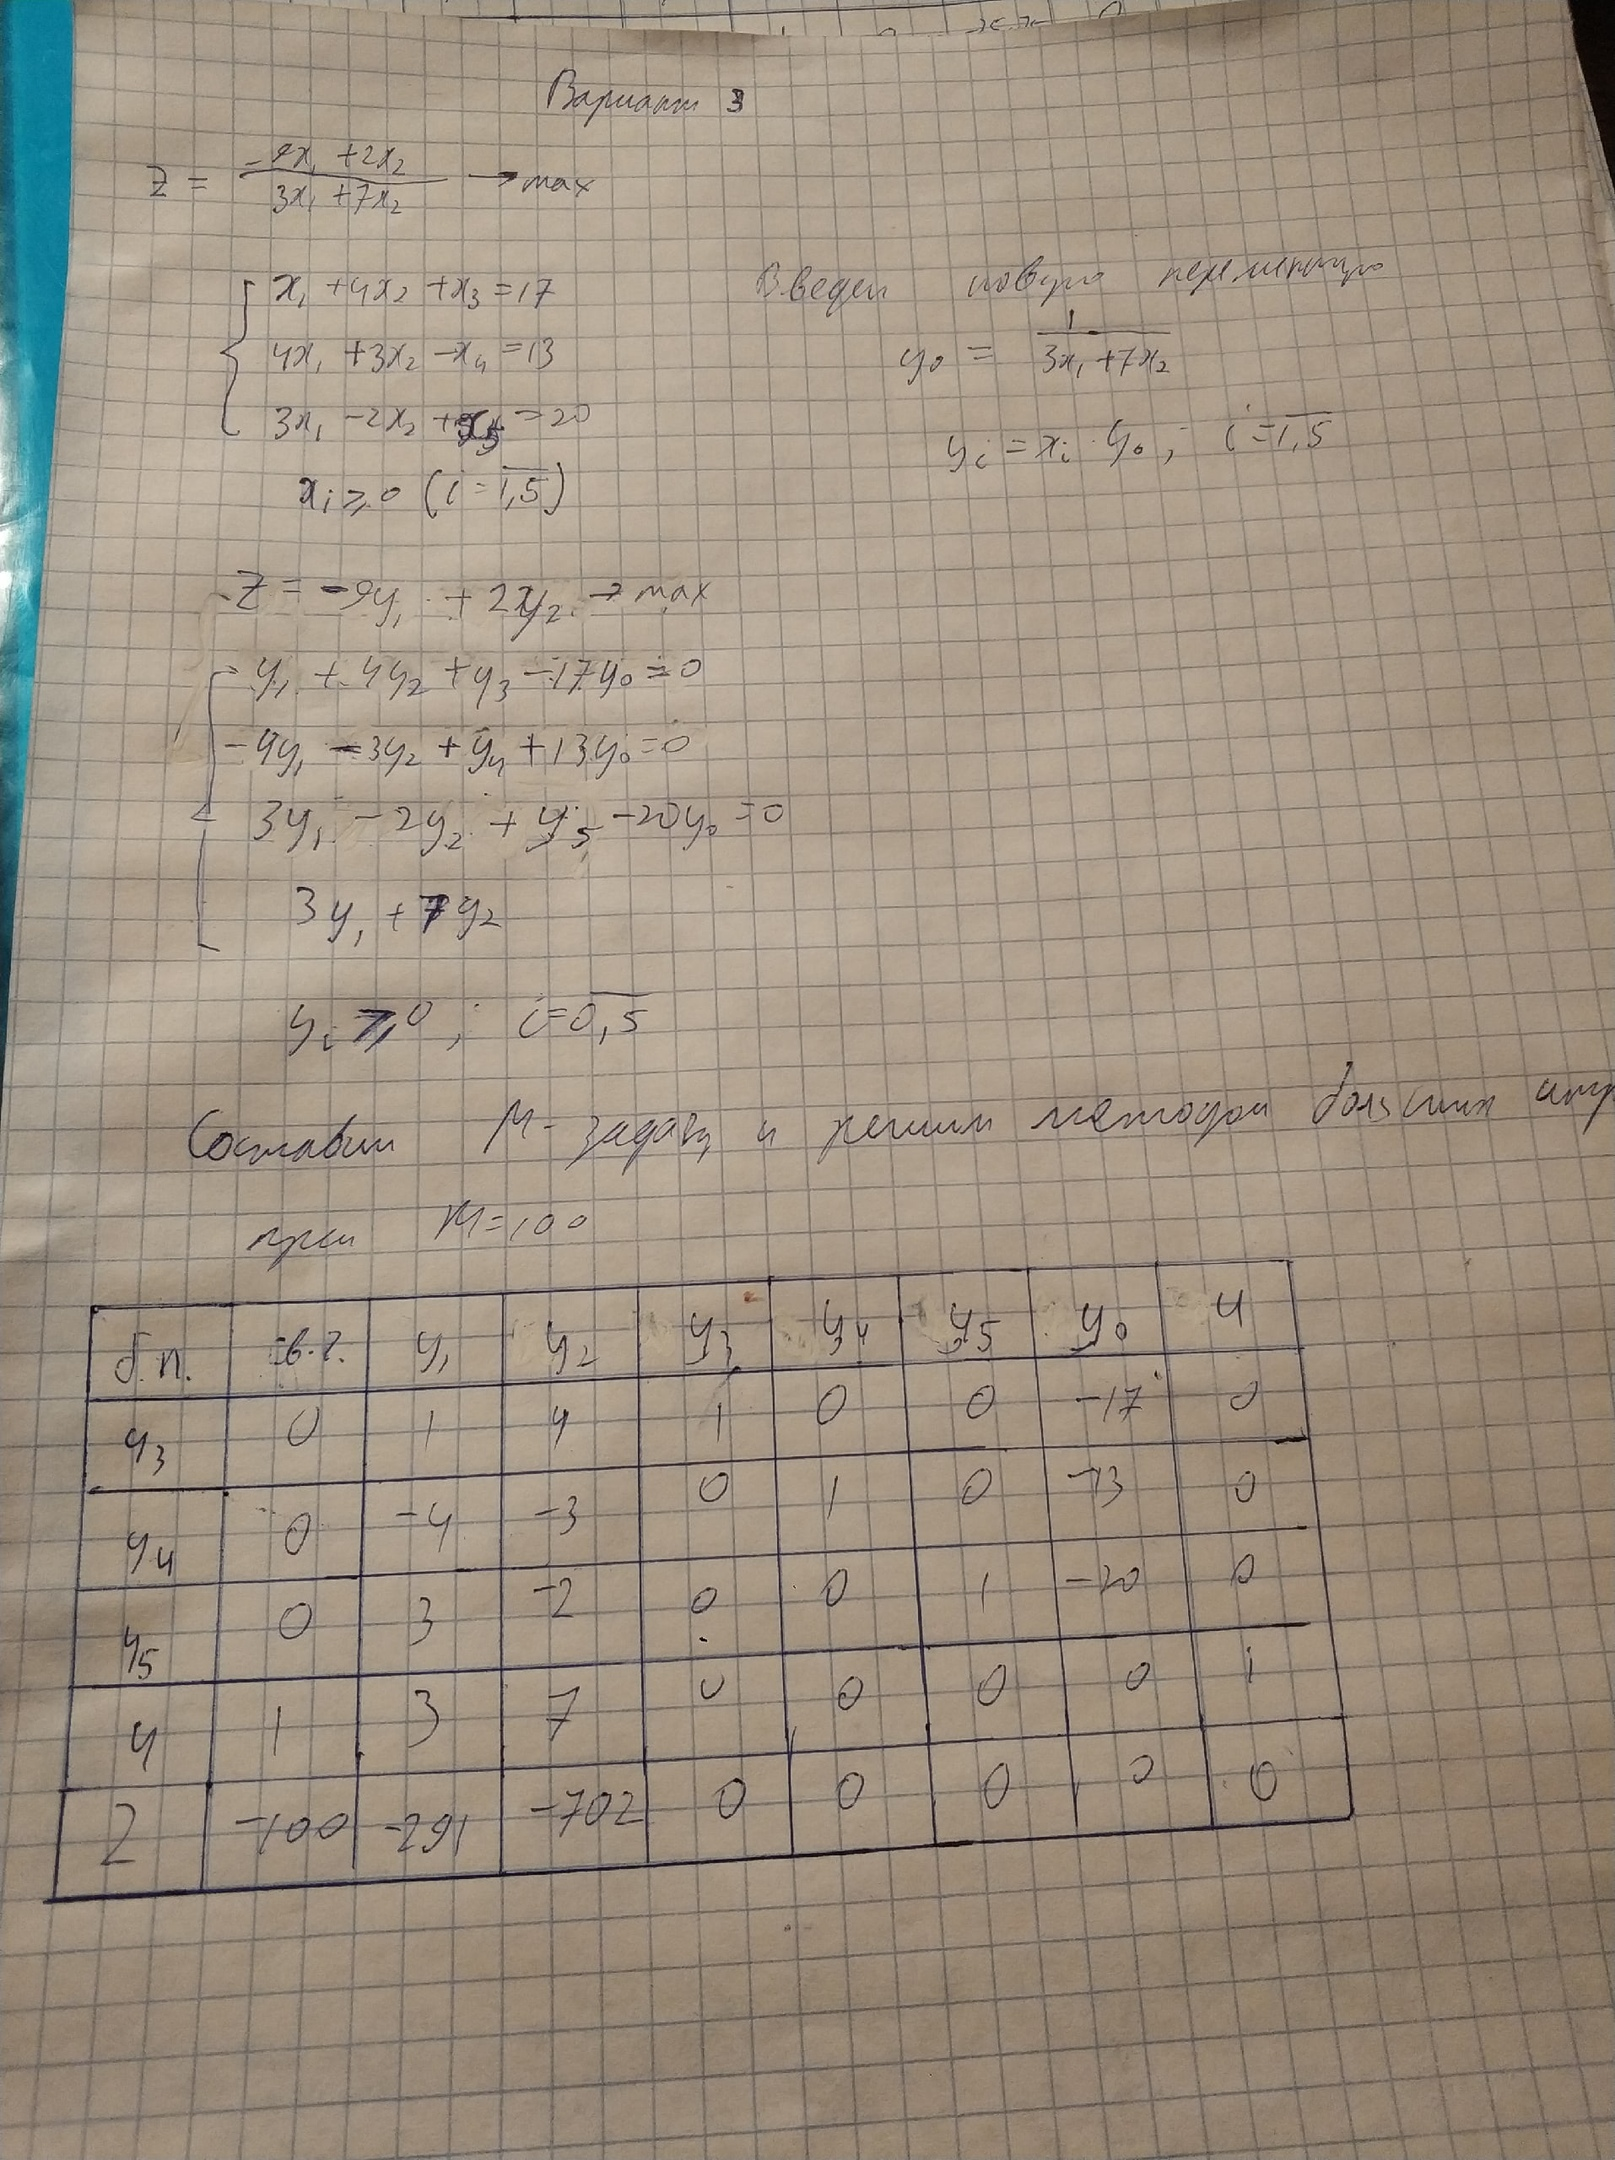 Вариант 3
Z = (-9x₁ + 2x₂)/(3x₁ + 7x₂) → max
x₁ + 4x₂ + x₃ = 17
4x₁ + 3x₂ - x₄ = 13
3x₁ - 2x₂ + x₅ = 20
xᵢ ≥ 0 (i = 1,5)
Введем новую переменную
y₀ = 1/(3x₁ + 7x₂)
yᵢ = xᵢ · y₀ ; i = 1,5
Z = -9y₁ + 2y₂ → max
y₁ + 4y₂ + y₃ - 17y₀ = 0
-4y₁ - 3y₂ + y₄ + 13y₀ = 0
3y₁ - 2y₂ + y₅ - 20y₀ = 0
3y₁ + 7y₂
yᵢ ≥ 0 ; i = 0,5
Составим М-задачу и решим методом больших
при M=100
б.п. св.ч. y₁ y₂ y₃ y₄ y₅ y₀ u
y₃ 0 1 4 1 0 0 -17 0
y₄ 0 -4 -3 0 1 0 -13 0
y₅ 0 3 -2 0 0 1 -20 0
u 1 3 7 0 0 0 0 1
Z -100 -291 -702 0 0 0 0 0